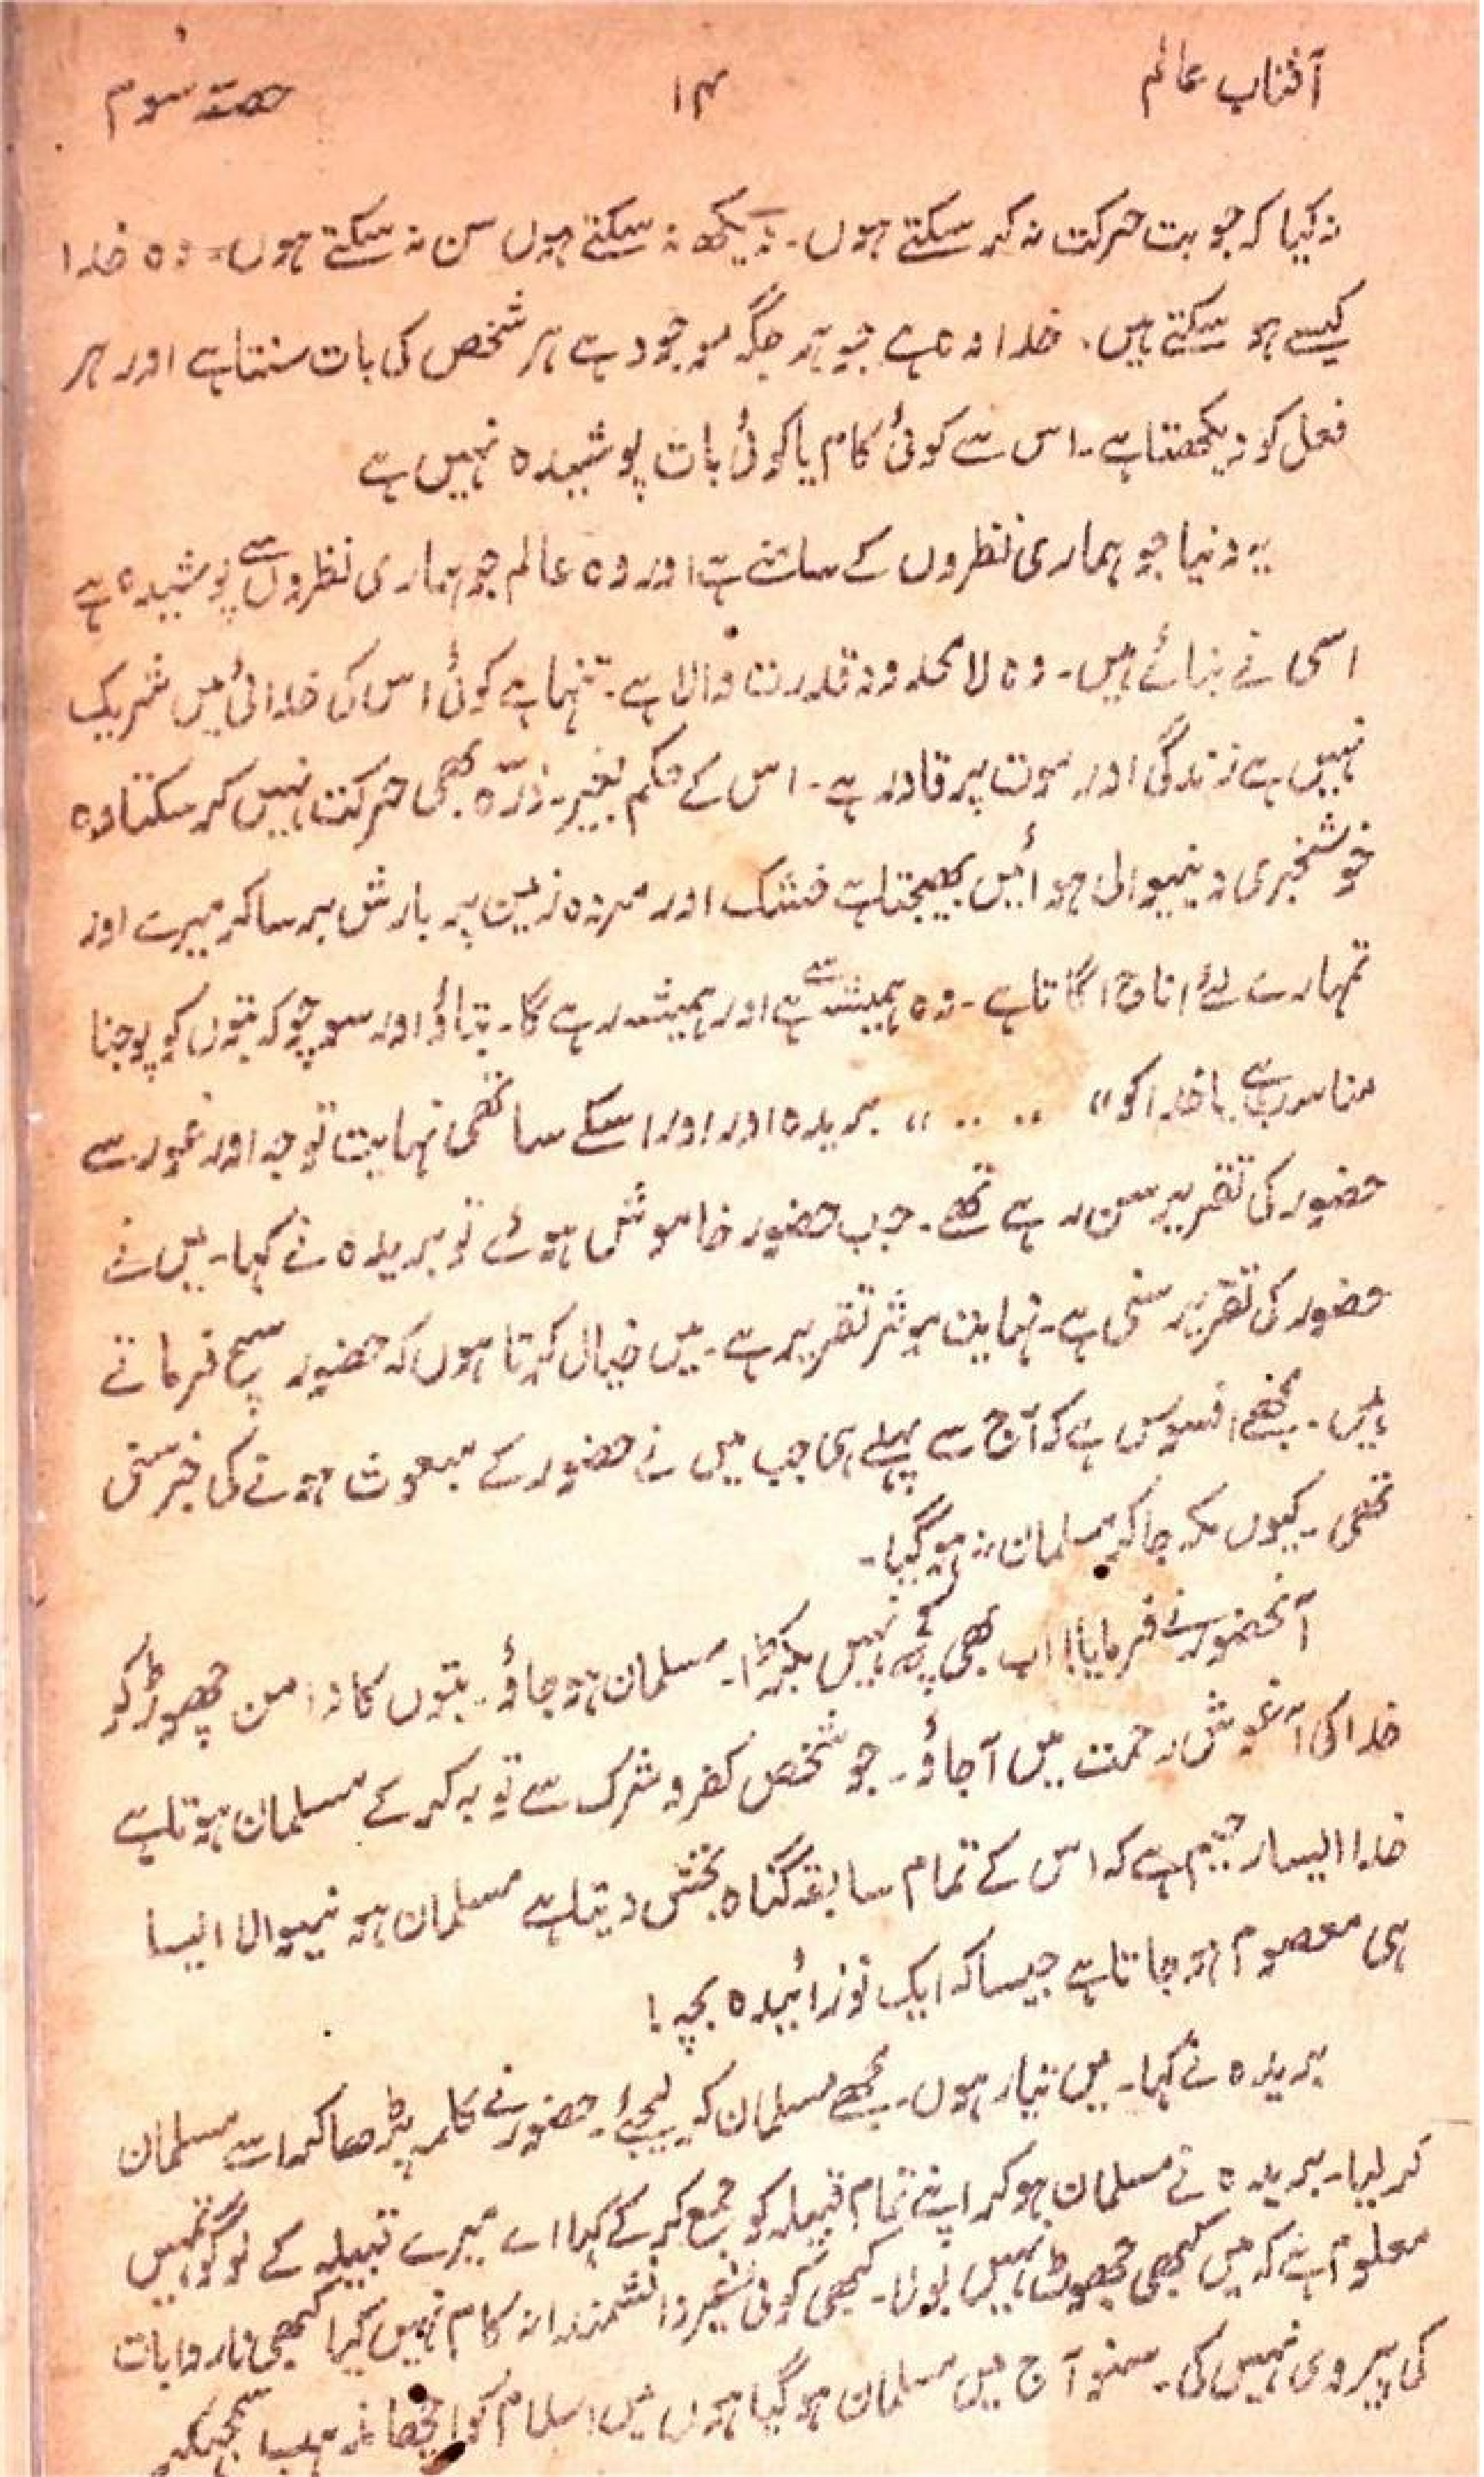 آفتاب عالم ۱۴ حصہ سُوم
نہ کیا کہ جو بت حرکت نہ کر سکتے ہوں۔ دیکھ نہ سکتے ہوں سن نہ سکتے ہوں۔ وہ خدا
کیسے ہو سکتے ہیں۔ خدا وہ ہے جو ہر جگہ موجود ہے ہر شخص کی بات سنتا ہے اور ہر
فعل کو دیکھتا ہے۔ اس سے کوئی کام یا کوئی بات پوشیدہ نہیں ہے
یہ دنیا جو ہماری نظروں کے سامنے ہے اور وہ عالم جو ہماری نظروں سے پوشیدہ ہے
اسی نے بنائے ہیں۔ وہ لا محدود قدرت والا ہے۔ تنہا ہے کوئی اس کی خدائی میں شریک
نہیں ہے زندگی اور موت پر قادر ہے۔ اس کے حکم بغیر ذرّہ بھی حرکت نہیں کر سکتا وہ
خوشخبری دینیوالی ہوائیں بھیجتا ہے خشک اور مردہ زمین پر بارش برسا کر میرے اور
تمہارے لئے اناج اگاتا ہے۔ وہ ہمیشہ سے ہے اور ہمیشہ رہے گا۔ بتاؤ اور سوچو کہ بتوں کو پوجنا
مناسب ہے یا خدا کو“ ‥ ‥ “ بریدہ اور اور اسکے ساتھی نہایت توجہ اور غور سے
حضور کی تقریر سن رہے تھے۔ جب حضور خاموش ہوئے تو بریدہ نے کہا۔ میں نے
حضور کی تقریر سنی ہے۔ نہایت موثر تقریر ہے۔ میں خیال کرتا ہوں کہ حضور سچ فرماتے
ہیں۔ مجھے افسوس ہے کہ آج سے پہلے ہی جب میں نے حضور کے مبعوث ہونے کی خبر سنی
تھی۔ کیوں مکہ جا کر مسلمان نہ ہو گیا۔
آنحضور نے فرمایا! اب بھی کچھ نہیں بگڑا۔ مسلمان ہو جاؤ۔ بتوں کا دامن چھوڑ کر
خدا کی آغوش رحمت میں آجاؤ۔ جو شخص کفر و شرک سے توبہ کر کے مسلمان ہوتا ہے
خدا ایسا رحیم ہے کہ اس کے تمام سابقہ گناہ بخش دیتا ہے مسلمان ہونیوالا ایسا
ہی معصوم ہو جاتا ہے جیسا کہ ایک نوزائیدہ بچہ!
بریدہ نے کہا۔ میں تیار ہوں۔ مجھے مسلمان کر لیجئے۔ حضور نے کلمہ پڑھا کر اسے مسلمان
کر لیا۔ بریدہ نے مسلمان ہو کر اپنے تمام قبیلہ کو جمع کر کے کہا اے میرے قبیلہ کے لوگو تمہیں
معلوم ہے کہ میں کبھی جھوٹ نہیں بولا۔ کبھی کوئی غیر دانشمندانہ کام نہیں کیا کبھی ناروا بات
کی پیروی نہیں کی۔ سنو آج میں مسلمان ہو گیا ہوں میں اسلام کو اچھا مذہب سمجھکر